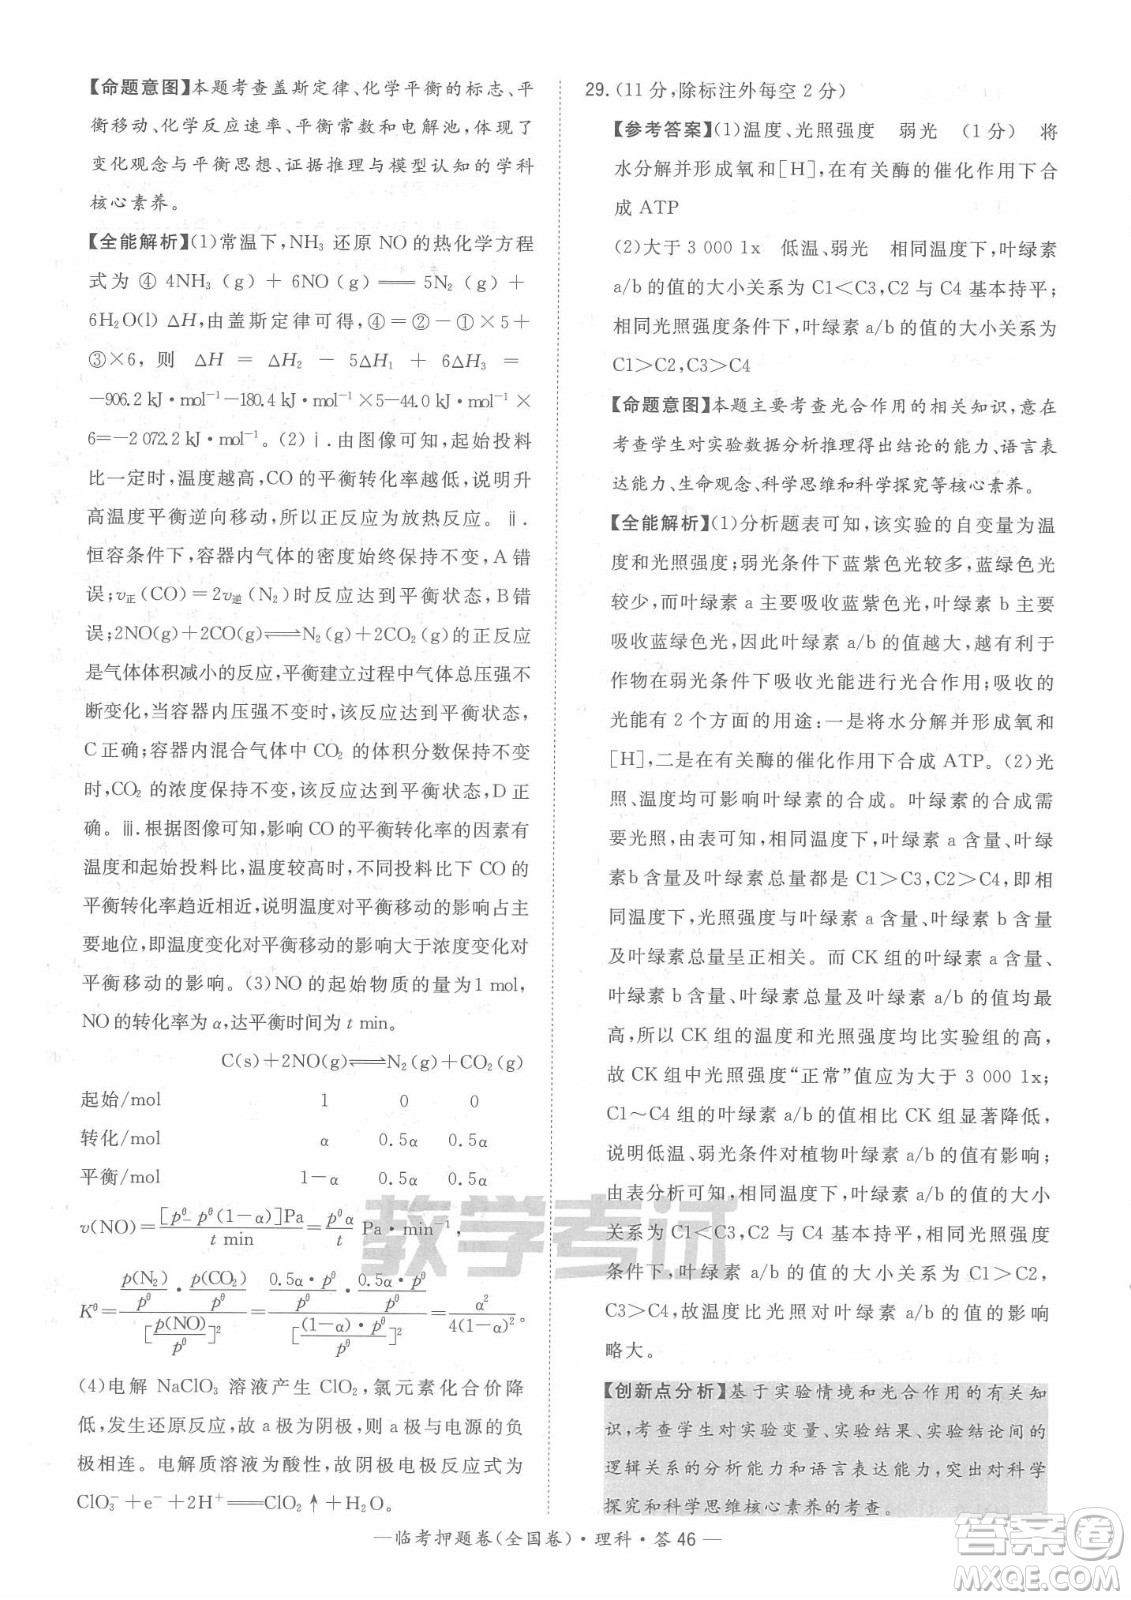 【命题意图】本题考查盖斯定律、化学平衡的标志、平
衡移动、化学反应速率、平衡常数和电解池，体现了
变化观念与平衡思想、证据推理与模型认知的学科
核心素养。
【全能解析】(1)常温下，NH₃ 还原 NO 的热化学方程
式为 ④ 4NH₃(g) + 6NO(g) ═══ 5N₂(g) +
6H₂O(l) △H，由盖斯定律可得，④=②-①×5+
③×6，则 △H = △H₂ - 5△H₁ + 6△H₃ =
-906.2 kJ·mol⁻¹-180.4 kJ·mol⁻¹×5-44.0 kJ·mol⁻¹×
6=-2 072.2 kJ·mol⁻¹。(2)ⅰ.由图像可知，起始投料
比一定时，温度越高，CO 的平衡转化率越低，说明升
高温度平衡逆向移动，所以正反应为放热反应。ⅱ.
恒容条件下，容器内气体的密度始终保持不变，A 错
误；v正(CO)=2v逆(N₂)时反应达到平衡状态，B 错
误；2NO(g)+2CO(g)⇌N₂(g)+2CO₂(g)的正反应
是气体体积减小的反应，平衡建立过程中气体总压强
不断变化，容器内压强不变时，该反应达到平衡状态，
C 正确；容器内混合气体中 CO₂ 的体积分数保持不变
时，CO₂ 的浓度保持不变，反应达到平衡状态，D 正
确。ⅲ.根据图像可知，影响 CO 的平衡转化率的因素有
温度和起始投料比，温度较高时，不同投料比下 CO 的
平衡转化率趋近相近，说明温度对平衡移动的影响占主
要地位，即温度变化对平衡移动的影响大于浓度变化对
平衡移动的影响。(3)NO 的起始物质的量为1 mol，
NO 的转化率为 α，达平衡时间为 t min。
C(s)+2NO(g)⇌N₂(g)+CO₂(g)
起始/mol 1 0 0
转化/mol α 0.5α 0.5α
平衡/mol 1-α 0.5α 0.5α
v(NO)=[p^θ-p^θ(1-α)]Pa/t min=p^θα/t Pa·min⁻¹，
K^θ=(p(N₂)/p^θ·p(CO₂)/p^θ)/[p(NO)/p^θ]²=(0.5α·p^θ/p^θ·0.5α·p^θ/p^θ)/[(1-α)·p^θ/p^θ]²=α²/4(1-α)²。
(4)电解 NaClO₃ 溶液产生 ClO₂，氯元素化合价降
低，发生还原反应，故 a 极为阴极，则 a 极与电源的负
极相连。电解质溶液为酸性，故阴极电极反应式为
ClO₃⁻+e⁻+2H⁺═══ClO₂↑+H₂O。
29.(11 分，除标注外每空 2 分)
【参考答案】(1)温度、光照强度 弱光 (1 分) 将
水分解并形成氧和[H]，在有关酶的催化作用下合
成 ATP
(2)大于 3 000 lx 低温、弱光 相同温度下，叶绿素
a/b 的值的大小关系为 C1<C3，C2 与 C4 基本持平；
相同光照强度条件下，叶绿素 a/b 的值的大小关系为
C1>C2，C3>C4
【命题意图】本题主要考查光合作用的相关知识，意在
考查学生对实验数据分析推理得出结论的能力、语言表
达能力、生命观念、科学思维和科学探究等核心素养。
【全能解析】(1)分析题表可知，该实验的自变量为温
度和光照强度；弱光条件下蓝紫色光较多，蓝绿色光
较少，而叶绿素 a 主要吸收蓝紫色光，叶绿素 b 主要
吸收蓝绿色光，因此叶绿素 a/b 的值越大，越有利于
作物在弱光条件下吸收光能进行光合作用；吸收的
光能有 2 个方面的用途：一是将水分解并形成氧和
[H]，二是在有关酶的催化作用下合成 ATP。(2)光
照、温度均可影响叶绿素的合成。叶绿素的合成需
要光照，由表可知，相同温度下，叶绿素 a 含量、叶绿
素b 含量及叶绿素总量都是 C1>C3，C2>C4，即相
同温度下，光照强度与叶绿素 a 含量、叶绿素 b 含量
及叶绿素总量呈正相关。而 CK 组的叶绿素 a 含量、
叶绿素 b 含量、叶绿素总量及叶绿素 a/b 的值均最
高，所以 CK 组的温度和光照强度均比实验组的高，
故 CK 组中光照强度“正常”值应为大于 3 000 lx；
C1～C4 组的叶绿素 a/b 的值相比 CK 组显著降低，
说明低温、弱光条件对植物叶绿素 a/b 的值有影响。
由表分析可知，相同温度下，叶绿素 a/b 的值的大小
关系为 C1<C3，C2 与 C4 基本持平，相同光照强度
条件下，叶绿素 a/b 的值的大小关系为 C1>C2，
C3>C4，故温度比光照对叶绿素 a/b 的值的影响
略大。
【创新点分析】基于实验情境和光合作用的有关知
识，考查学生对实验变量、实验结果、实验结论间的
逻辑关系的分析能力和语言表达能力，突出对科学
探究和科学思维核心素养的考查。
教学考试
—临考押题卷(全国卷)·理科·答 46—
答案圈
MXQE.COM